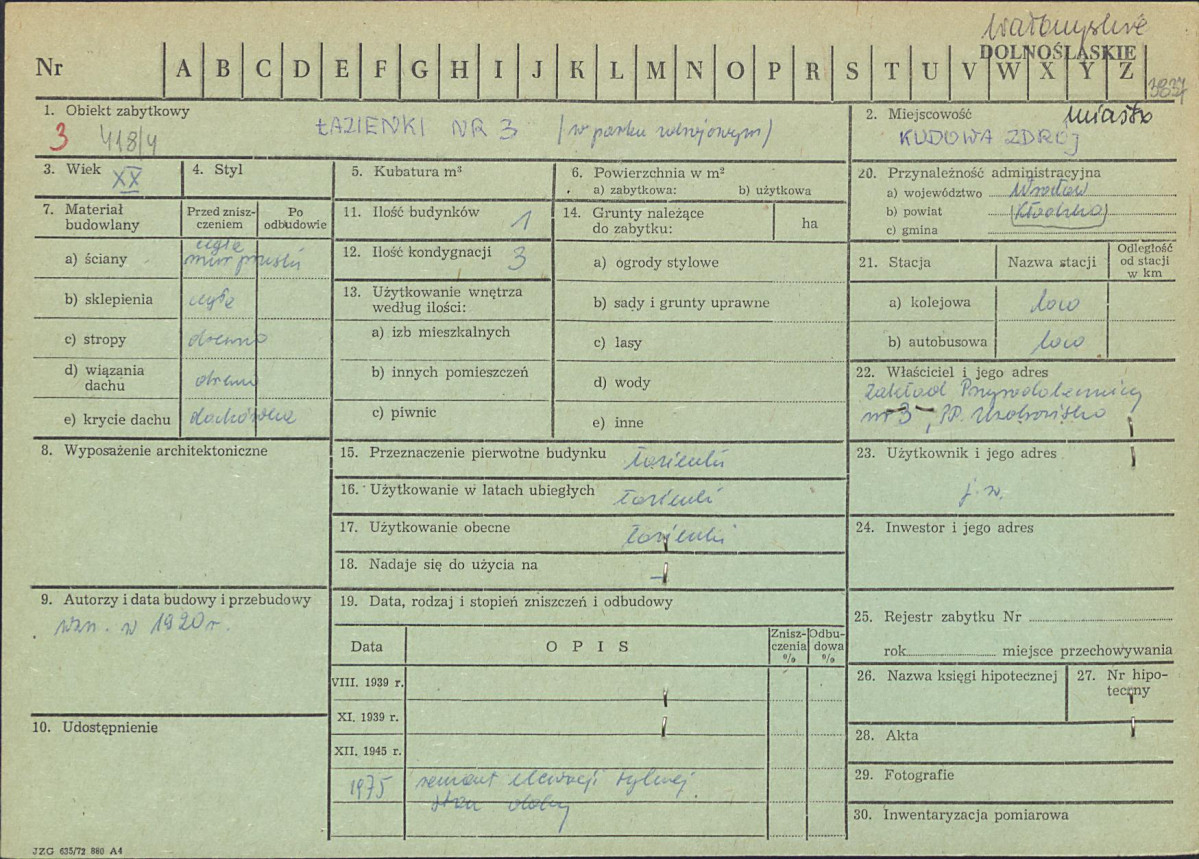 Wałbrzyskie
DOLNOŚLĄSKIE
Nr A B C D E F G H I J K L M N O P R S T U V W X Y Z
3837
1. Obiekt zabytkowy
3 418/4 ŁAZIENKI NR 3 (w parku zdrojowym)
2. Miejscowość miasto
KUDOWA ZDRÓJ
3. Wiek XX
4. Styl
5. Kubatura m³
6. Powierzchnia w m²
a) zabytkowa: b) użytkowa
20. Przynależność administracyjna
a) województwo Wrocław
b) powiat (Kłodzko)
c) gmina
7. Materiał budowlany
Przed zniszczeniem
Po odbudowie
a) ściany cegła
mur pruski
b) sklepienia cegła
c) stropy drewno
d) wiązania dachu drewno
e) krycie dachu dachówka
11. Ilość budynków 1
12. Ilość kondygnacji 3
13. Użytkowanie wnętrza
według ilości:
a) izb mieszkalnych
b) innych pomieszczeń
c) piwnic
14. Grunty należące
do zabytku: ha
a) ogrody stylowe
b) sady i grunty uprawne
c) lasy
d) wody
e) inne
21. Stacja Nazwa stacji
Odległość
od stacji
w km
a) kolejowa loco
b) autobusowa loco
22. Właściciel i jego adres
Zakład Przyrodoleczniczy
nr 3, PP. Uzdrowisko
8. Wyposażenie architektoniczne
15. Przeznaczenie pierwotne budynku łazienki
16. Użytkowanie w latach ubiegłych łazienki
17. Użytkowanie obecne łazienki
18. Nadaje się do użycia na –
23. Użytkownik i jego adres
j.w.
24. Inwestor i jego adres
9. Autorzy i data budowy i przebudowy
wzn. w 1920 r.
19. Data, rodzaj i stopień zniszczeń i odbudowy
Data OPIS
Zniszczenia %
Odbudowa %
VIII. 1939 r.
XI. 1939 r.
XII. 1945 r.
1975 remont elewacji tylnej
stan dobry
10. Udostępnienie
25. Rejestr zabytku Nr
rok miejsce przechowywania
26. Nazwa księgi hipotecznej
27. Nr hipoteczny
28. Akta
29. Fotografie
30. Inwentaryzacja pomiarowa
JZG 635/72 880 A4